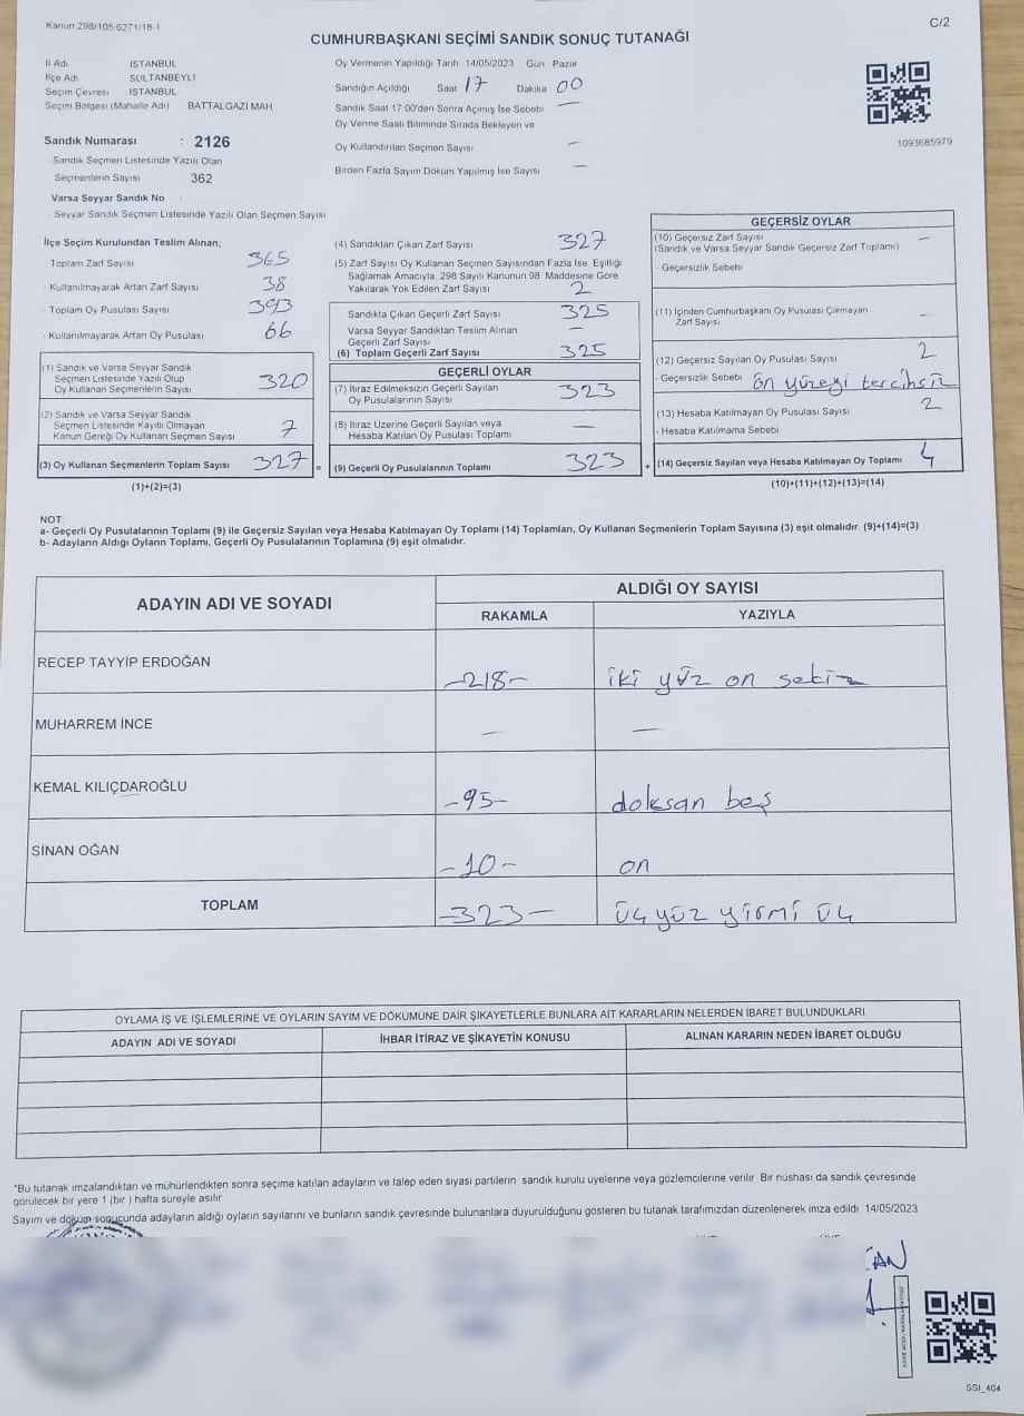 Kanun 298/105-6271/18-1
C/2
CUMHURBAŞKANI SEÇİMİ SANDIK SONUÇ TUTANAĞI
İl Adı : İSTANBUL
İlçe Adı : SULTANBEYLİ
Seçim Çevresi : İSTANBUL
Seçim Bölgesi (Mahalle Adı) : BATTALGAZİ MAH
Sandık Numarası : 2126
Sandık Seçmen Listesinde Yazılı Olan
Seçmenlerin Sayısı 362
Varsa Seyyar Sandık No :
Seyyar Sandık Seçmen Listesinde Yazılı Olan Seçmen Sayısı
Oy Vermenin Yapıldığı Tarih 14/05/2023 Gün Pazar
Sandığın Açıldığı Saat 17 Dakika 00
Sandık Saat 17.00'den Sonra Açılmış İse Sebebi —
Oy Verme Saati Bitiminde Sırada Bekleyen ve
Oy Kullandırılan Seçmen Sayısı —
Birden Fazla Sayım Döküm Yapılmış İse Sayısı —
1093685979
İlçe Seçim Kurulundan Teslim Alınan;
Toplam Zarf Sayısı 365
Kullanılmayarak Artan Zarf Sayısı 38
Toplam Oy Pusulası Sayısı 393
Kullanılmayarak Artan Oy Pusulası 66
(1) Sandık ve Varsa Seyyar Sandık
Seçmen Listesinde Yazılı Olup
Oy Kullanan Seçmenlerin Sayısı 320
(2) Sandık ve Varsa Seyyar Sandık
Seçmen Listesinde Kayıtlı Olmayan
Kanun Gereği Oy Kullanan Seçmen Sayısı 7
(3) Oy Kullanan Seçmenlerin Toplam Sayısı 327 =
(1)+(2)=(3)
(4) Sandıktan Çıkan Zarf Sayısı 327
(5) Zarf Sayısı Oy Kullanan Seçmen Sayısından Fazla İse, Eşitliği
Sağlamak Amacıyla, 298 Sayılı Kanunun 98. Maddesine Göre
Yakılarak Yok Edilen Zarf Sayısı 2
Sandıkta Çıkan Geçerli Zarf Sayısı 325
Varsa Seyyar Sandıktan Teslim Alınan
Geçerli Zarf Sayısı —
(6) Toplam Geçerli Zarf Sayısı 325
GEÇERLİ OYLAR
(7) İtiraz Edilmeksizin Geçerli Sayılan
Oy Pusulalarının Sayısı 323
(8) İtiraz Üzerine Geçerli Sayılan veya
Hesaba Katılan Oy Pusulası Toplamı —
(9) Geçerli Oy Pusulalarının Toplamı 323 +
GEÇERSİZ OYLAR
(10) Geçersiz Zarf Sayısı —
(Sandık ve Varsa Seyyar Sandık Geçersiz Zarf Toplamı)
- Geçersizlik Sebebi
(11) İçinden Cumhurbaşkanı Oy Pusulası Çıkmayan
Zarf Sayısı —
(12) Geçersiz Sayılan Oy Pusulası Sayısı 2
- Geçersizlik Sebebi ön yüzeyi tercihsiz
(13) Hesaba Katılmayan Oy Pusulası Sayısı 2
- Hesaba Katılmama Sebebi
(14) Geçersiz Sayılan veya Hesaba Katılmayan Oy Toplamı 4
(10)+(11)+(12)+(13)=(14)
NOT:
a- Geçerli Oy Pusulalarının Toplamı (9) ile Geçersiz Sayılan veya Hesaba Katılmayan Oy Toplamı (14) Toplamları, Oy Kullanan Seçmenlerin Toplam Sayısına (3) eşit olmalıdır. (9)+(14)=(3)
b- Adayların Aldığı Oyların Toplamı, Geçerli Oy Pusulalarının Toplamına (9) eşit olmalıdır.
ADAYIN ADI VE SOYADI
ALDIĞI OY SAYISI
RAKAMLA YAZIYLA
RECEP TAYYİP ERDOĞAN -218- iki yüz on sekiz
MUHARREM İNCE — —
KEMAL KILIÇDAROĞLU -95- doksan beş
SİNAN OĞAN -10- on
TOPLAM -323- üç yüz yirmi üç
OYLAMA İŞ VE İŞLEMLERİNE VE OYLARIN SAYIM VE DÖKÜMÜNE DAİR ŞİKAYETLERLE BUNLARA AİT KARARLARIN NELERDEN İBARET BULUNDUKLARI
ADAYIN ADI VE SOYADI İHBAR İTİRAZ VE ŞİKAYETİN KONUSU ALINAN KARARIN NEDEN İBARET OLDUĞU
*Bu tutanak imzalandıktan ve mühürlendikten sonra seçime katılan adayların ve talep eden siyasi partilerin sandık kurulu üyelerine veya gözlemcilerine verilir. Bir nüshası da sandık çevresinde
görülecek bir yere 1 (bir ) hafta süreyle asılır.
Sayım ve döküm sonucunda adayların aldığı oyların sayılarını ve bunların sandık çevresinde bulunanlara duyurulduğunu gösteren bu tutanak tarafımızdan düzenlenerek imza edildi. 14/05/2023
SSI_404